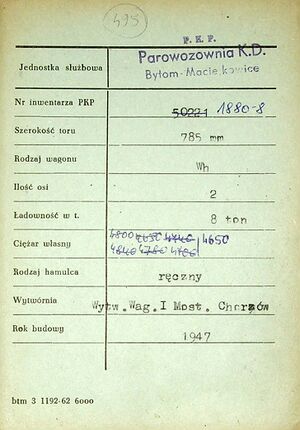 495
P. K. P.
Parowozownia K.D.
Bytom-Maciejkowice
Jednostka służbowa
Nr inwentarza PKP 50221 1880-8
Szerokość toru 785 mm
Rodzaj wagonu Wh
Ilość osi 2
Ładowność w t. 8 ton
4800 4650 4740 4650
Ciężar własny
4840 4780
Rodzaj hamulca ręczny
Wytwórnia Wytw.Wag.I Most. Chorzów
Rok budowy 1947
btm 3 1192-62 6000